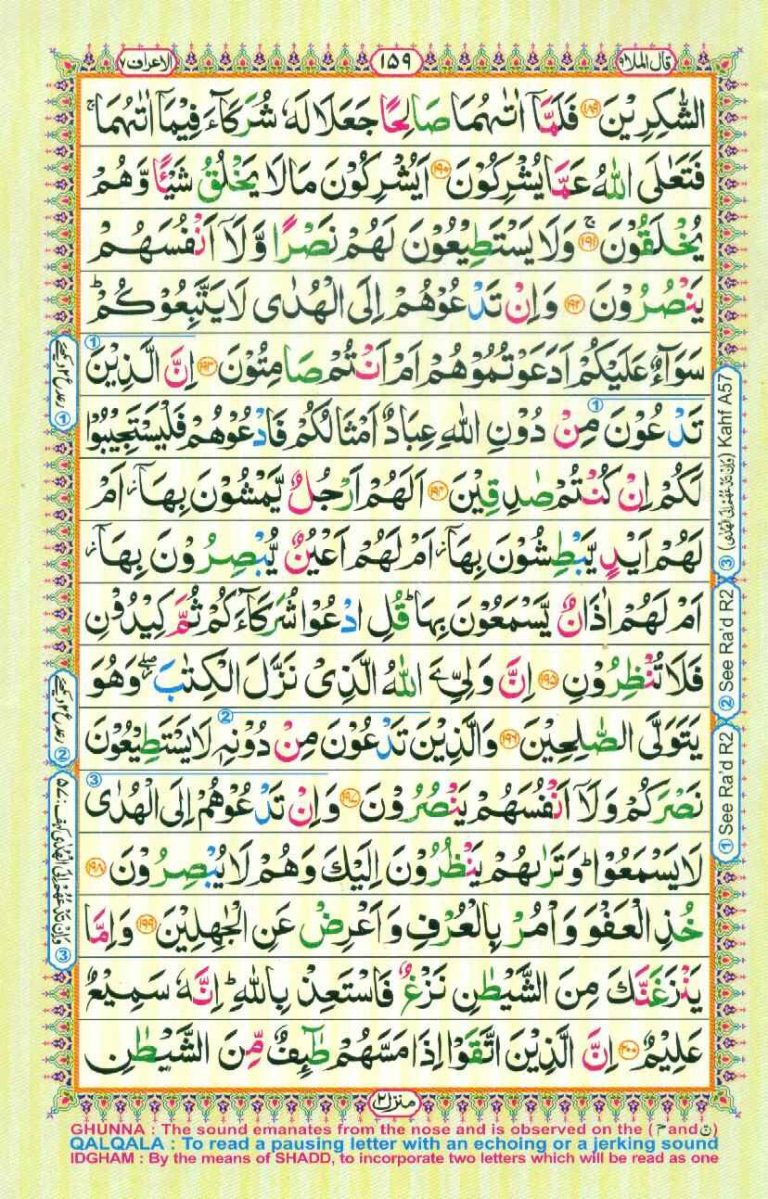 قال الملا ٩
١٥٩
الاعراف ٧
الشّٰكِرِيْنَ ﴿١٨٩﴾ فَلَمَّآ اٰتٰىهُمَا صَالِحًا جَعَلَا لَهٗ شُرَكَآءَ فِيْمَآ اٰتٰىهُمَا ۚ
فَتَعٰلَى اللّٰهُ عَمَّا يُشْرِكُوْنَ ﴿١٩٠﴾ اَيُشْرِكُوْنَ مَا لَا يَخْلُقُ شَيْـًٔا وَّهُمْ
يُخْلَقُوْنَ ۚ ﴿١٩١﴾ وَلَا يَسْتَطِيْعُوْنَ لَهُمْ نَصْرًا وَّلَآ اَنْفُسَهُمْ
يَنْصُرُوْنَ ﴿١٩٢﴾ وَاِنْ تَدْعُوْهُمْ اِلَى الْهُدٰى لَا يَتَّبِعُوْكُمْ ؕ
سَوَآءٌ عَلَيْكُمْ اَدَعَوْتُمُوْهُمْ اَمْ اَنْتُمْ صَامِتُوْنَ ﴿١٩٣﴾ اِنَّ الَّذِيْنَ
تَدْعُوْنَ مِنْ دُوْنِ اللّٰهِ عِبَادٌ اَمْثَالُكُمْ فَادْعُوْهُمْ فَلْيَسْتَجِيْبُوْا
لَكُمْ اِنْ كُنْتُمْ صٰدِقِيْنَ ﴿١٩٤﴾ اَلَهُمْ اَرْجُلٌ يَّمْشُوْنَ بِهَآ ؗ اَمْ
لَهُمْ اَيْدٍ يَّبْطِشُوْنَ بِهَآ ؗ اَمْ لَهُمْ اَعْيُنٌ يُّبْصِرُوْنَ بِهَآ ؗ
اَمْ لَهُمْ اٰذَانٌ يَّسْمَعُوْنَ بِهَا ؕ قُلِ ادْعُوْا شُرَكَآءَكُمْ ثُمَّ كِيْدُوْنِ
فَلَا تُنْظِرُوْنِ ﴿١٩٥﴾ اِنَّ وَلِيِّ ےَ اللّٰهُ الَّذِيْ نَزَّلَ الْكِتٰبَ ۖ وَهُوَ
يَتَوَلَّى الصّٰلِحِيْنَ ﴿١٩٦﴾ وَالَّذِيْنَ تَدْعُوْنَ مِنْ دُوْنِهٖ لَا يَسْتَطِيْعُوْنَ
نَصْرَكُمْ وَلَآ اَنْفُسَهُمْ يَنْصُرُوْنَ ﴿١٩٧﴾ وَاِنْ تَدْعُوْهُمْ اِلَى الْهُدٰى
لَا يَسْمَعُوْا ؕ وَتَرٰىهُمْ يَنْظُرُوْنَ اِلَيْكَ وَهُمْ لَا يُبْصِرُوْنَ ﴿١٩٨﴾
خُذِ الْعَفْوَ وَاْمُرْ بِالْعُرْفِ وَاَعْرِضْ عَنِ الْجٰهِلِيْنَ ﴿١٩٩﴾ وَاِمَّا
يَنْزَغَنَّكَ مِنَ الشَّيْطٰنِ نَزْغٌ فَاسْتَعِذْ بِاللّٰهِ ؕ اِنَّهٗ سَمِيْعٌ
عَلِيْمٌ ﴿٢٠٠﴾ اِنَّ الَّذِيْنَ اتَّقَوْا اِذَا مَسَّهُمْ طٰٓئِفٌ مِّنَ الشَّيْطٰنِ
منزل ٢
① See Ra'd R2 ② See Ra'd R2 ③ Kahf A57
GHUNNA : The sound emanates from the nose and is observed on the (نandم)
QALQALA : To read a pausing letter with an echoing or a jerking sound
IDGHAM : By the means of SHADD, to incorporate two letters which will be read as one